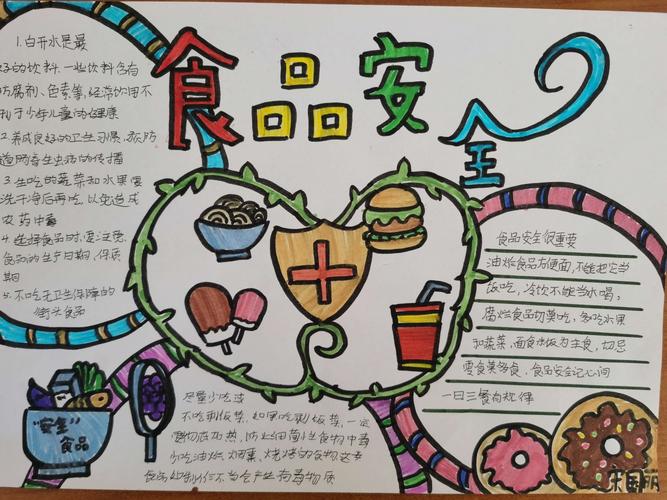 食品安全
1.白开水是最
好的饮料.一些饮料含有
防腐剂、色素等,经常饮用不
利于少年儿童的健康
2.养成良好的卫生习惯,预防
肠道寄生虫病的传播
3.生吃的蔬菜和水果要
洗干净后再吃,以免造成
农药中毒
4.选择食品时,要注意
食品的生产日期、保质
期
5.不吃无卫生保障的
街头食品
食品安全很重要
油炸食品方便面,不能把它当
饭吃,冷饮不能当水喝;
腐烂食品切莫吃,多吃水果
和蔬菜,面食米饭为主食,切忌
零食菜多食,食品安全记心间
一日三餐有规律
"安全"
食品
尽量少吃过
不吃剩饭菜,如果吃剩饭菜,一定
要彻底加热,防止细菌性食物中毒
少吃油炸、烟熏、烧烤的食物,这类
食品如制作不当会产生有毒物质